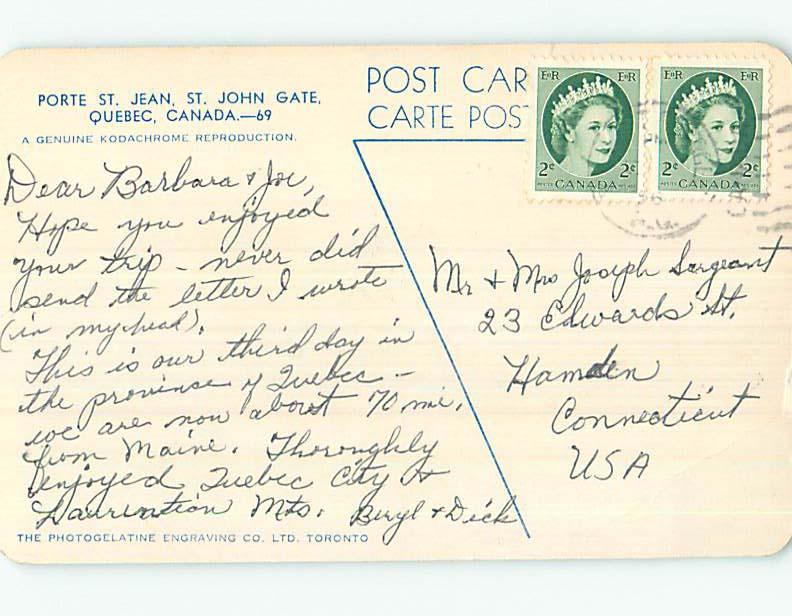 PORTE ST. JEAN, ST. JOHN GATE,
QUEBEC, CANADA.—69
A GENUINE KODACHROME REPRODUCTION.
POST CAR
CARTE POST
E II R E II R
2¢ 2¢
CANADA
E II R E II R
2¢ 2¢
CANADA
Dear Barbara & Joe,
Hope you enjoyed
your trip – never did
send the letter I wrote
(in my head).
This is our third day in
the province of Quebec –
we are now about 70 mi.
from Maine. Thoroughly
enjoyed Quebec City &
Laurention Mts. Beryl & Dick
Mr & Mrs Joseph Sargeant
23 Edwards St.
Hamden
Connecticut
USA
THE PHOTOGELATINE ENGRAVING CO. LTD. TORONTO